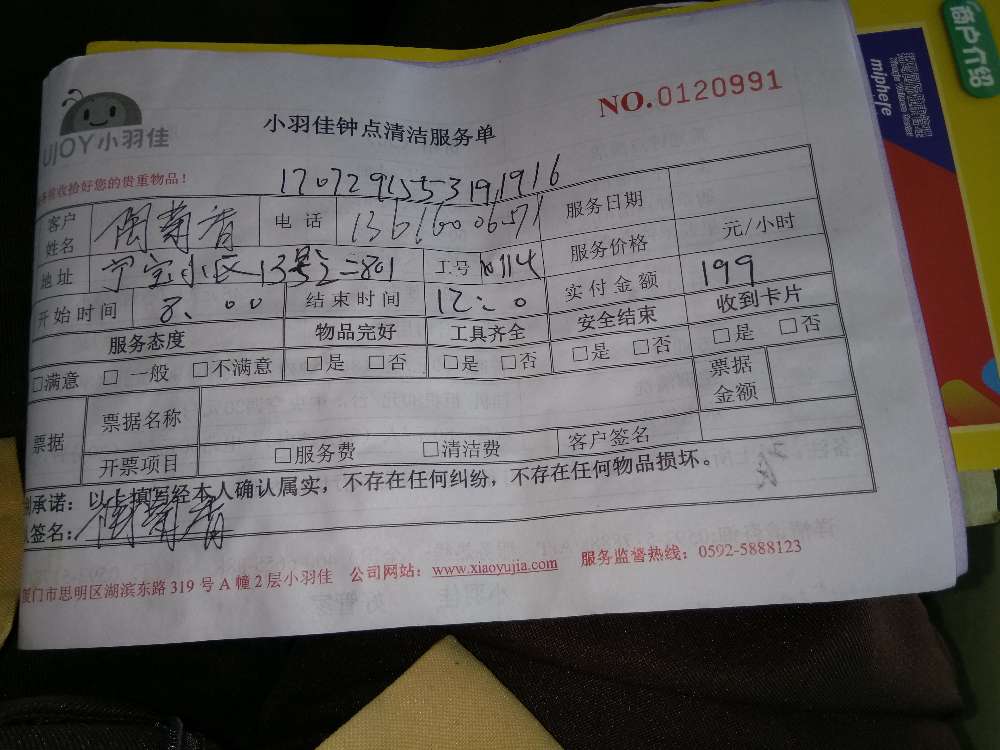 商户介绍
miphere
NO.0120991
UJOY小羽佳
小羽佳钟点清洁服务单
收拾好您的贵重物品!
170729155319,1916
客户姓名 陶菊香 电话 13616006571 服务日期
地址 宁宝小区13号之二801 工号 10114 服务价格 元/小时
开始时间 8:00 结束时间 12:0 实付金额 199
服务态度 物品完好 工具齐全 安全结束 收到卡片
□满意 □一般 □不满意 □是 □否 □是 □否 □是 □否 □是 □否
票据 票据名称 票据金额
开票项目 □服务费 □清洁费 客户签名
承诺:以上填写经本人确认属实,不存在任何纠纷,不存在任何物品损坏。
签名:陶菊香
厦门市思明区湖滨东路319号A幢2层小羽佳 公司网站:www.xiaoyujia.com 服务监督热线:0592-5888123